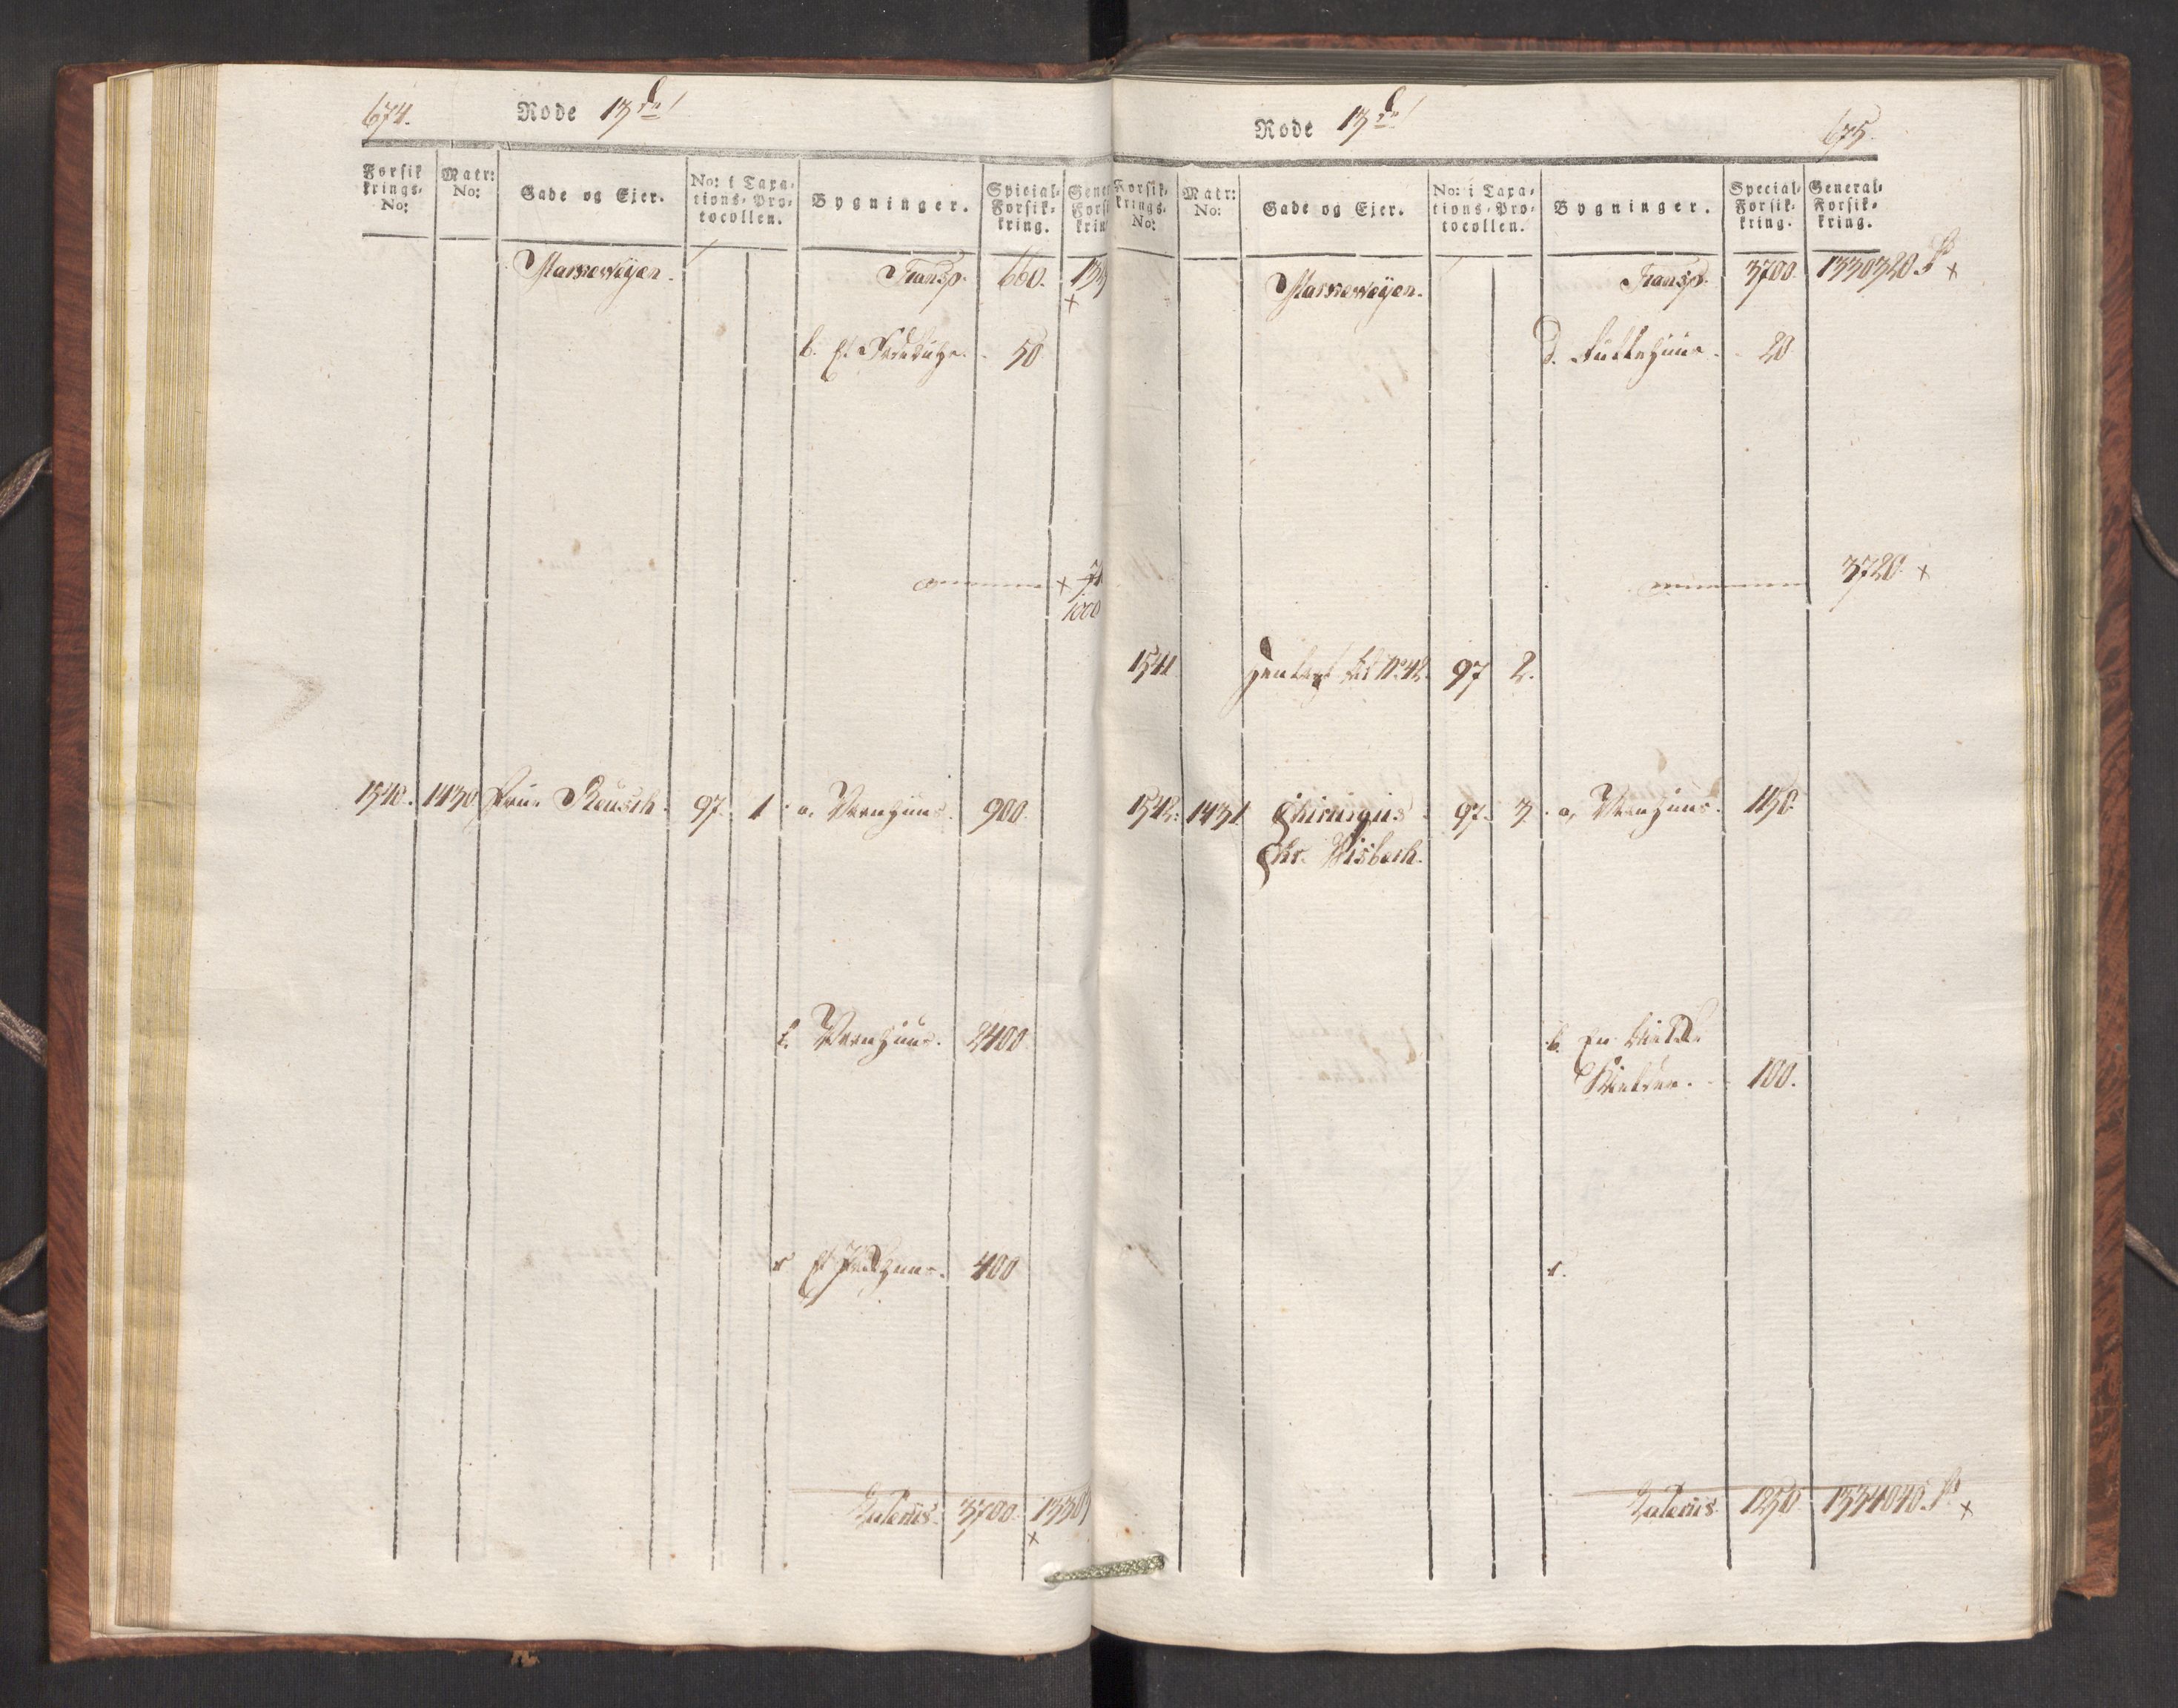 674.
Rode 13de
Forsik
krings-
No:
Matr:
No:
Gade og Ejer.
No: i Taxa-
tions-Pro-
tocollen.
Bygninger.
Special-
Forsik-
kring.
Gene
Forsi
krin
Marneveyen.
Transp. 660. 133
b. et 50
1000
1540. 1430 Frue Reusch. 97. 1. a. Vaanhuus. 900.
b. Vaanhuus. 2400
c et Huus. 400
Lateris. 3700. 1330
Rode 13de
675.
Forsik-
krings-
No:
Matr:
No:
Gade og Ejer.
No: i Taxa-
tions-Pro-
tocollen.
Bygninger.
Special-
Forsik-
kring.
General-
Forsik-
kring.
Marneveyen. Transp. 3700. 1330320
d. huus. 20
3720.
1541 til No 42. 97 2.
1542. 1431 Chirurgus 97. 3. a, Vaanhuus. 1150.
Chr. Wisbech.
b. En
100.
c.
Lateris 1250 1334040